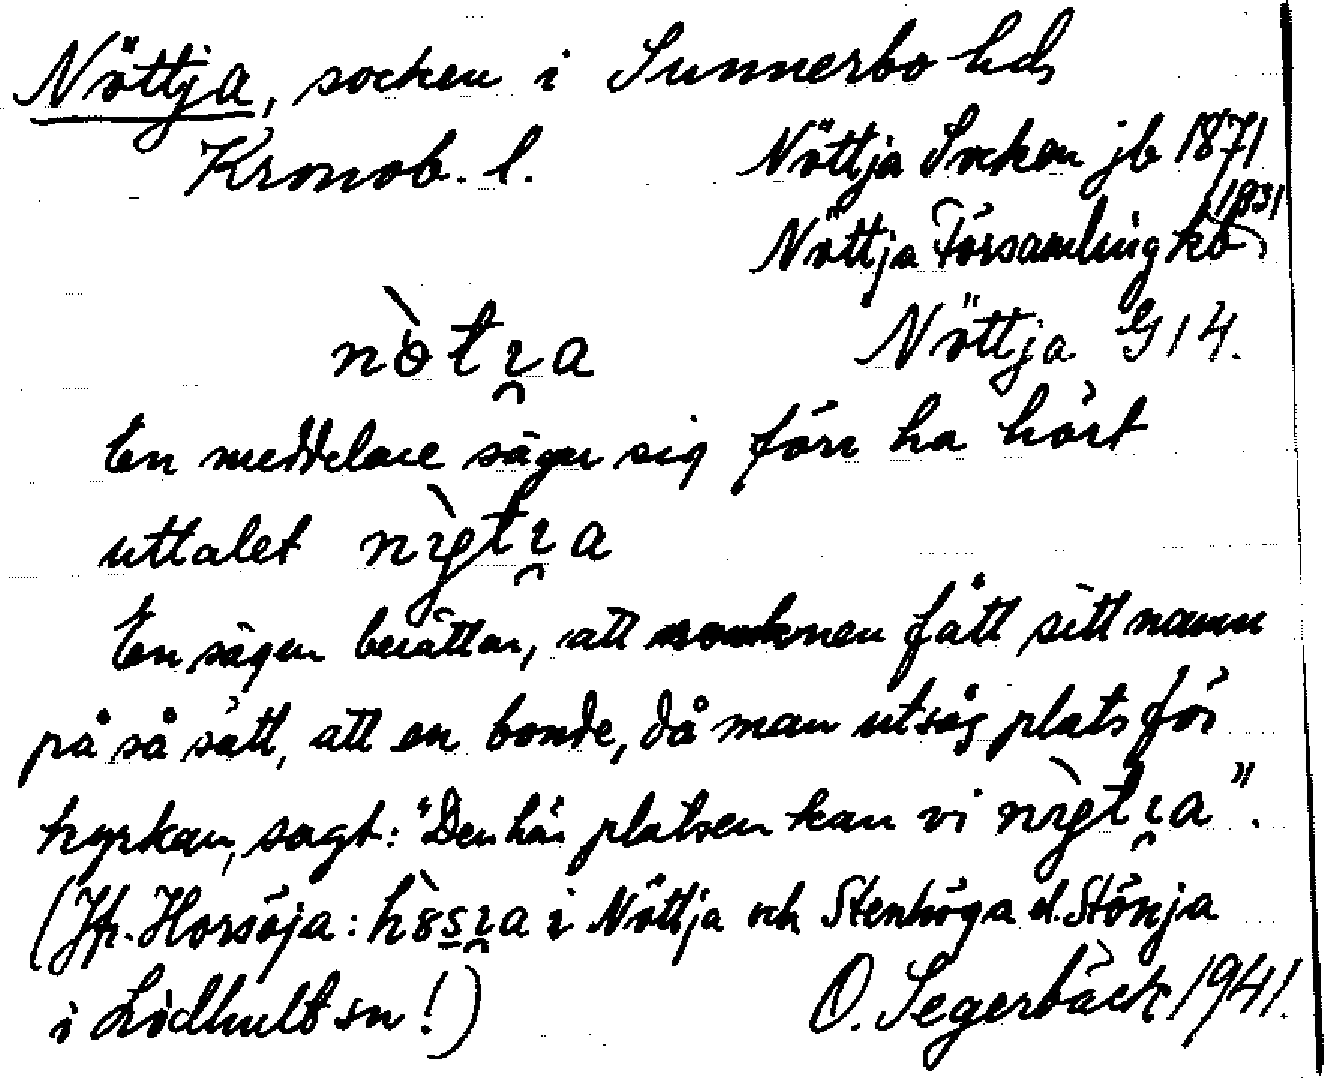 Nöttja, socken i Sunnerbo hd,
Kronob. l.
Nöttja Socken jb 1871
1931
Nöttja Församling kb
nòtɪ̯a
Nöttja G14.
En meddelare säger sig förr ha hört
uttalet nỳtɪ̯a
En sägen berättar, att socknen fått sitt namn
på så sätt, att en bonde, då man utsåg plats för
kyrkan, sagt: "Den här platsen kan vi nỳtɪ̯a".
(Jfr. Horsöja: hòsɪ̯a i Nöttja och Stenhöga el. Stönja
i Lidhult sn!)
O. Segerbäck 1941.